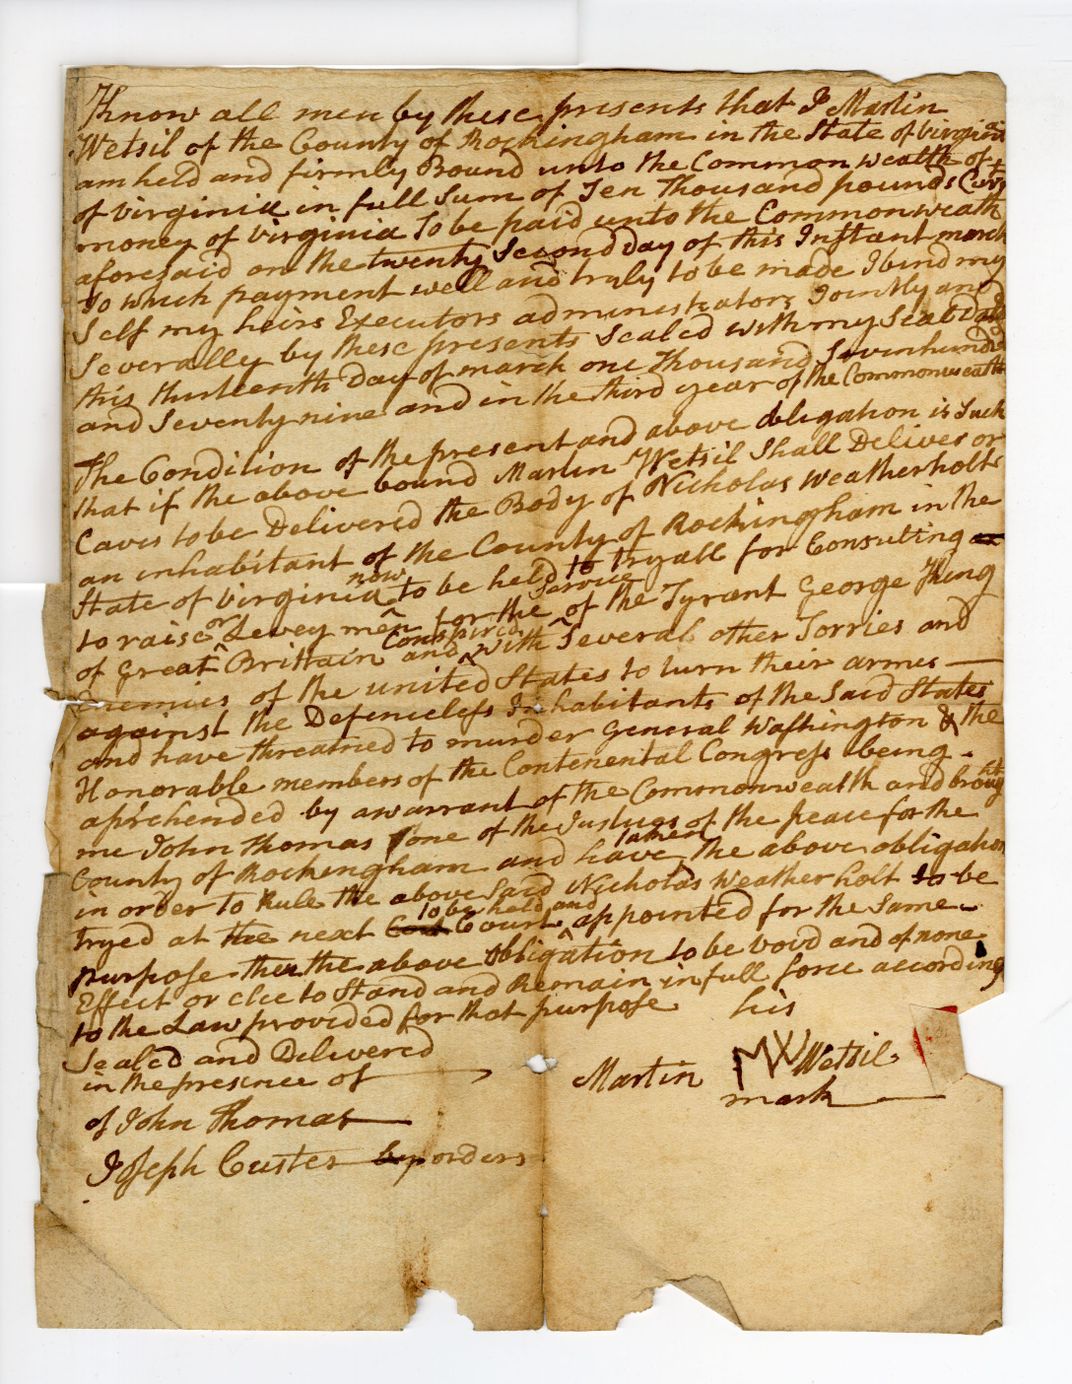 Know all men by these presents that I Martin
Wetsil of the County of Rockingham in the State of virginia
am held and firmly Bound unto the Common wealth of
of virginia in full Sum of Ten Thousand pounds Curt
money of virginia To be paid unto the Commonweath
aforesaid on the twenty Second day of this Instant march
To which payment well and truly to be made I bind my
Self my heirs Executors administrators Jointly and
Severally by these presents Sealed with my Seal Dated
this thirteenth Day of march one Thousand Sevenhundred
and Seventy nine and in the third year of the Commonwealth
The Condition of the present and above obligation is Such
that if the above bound Martin Wetsil Shall Deliver or
Caus to be Delivered the Body of Nicholas Weatherholt
an inhabitant of the County of Rockingham in the
State of virginia now to be held to tryall for Consulting
to raise or Levey men for the Service of the Tyrant George King
of Great Brittain and Conspired with Several other Torries and
Enemies of the united States to turn their armes —
against the Defenceless Inhabitants of the Said States
and have threatned to murder General Washington & the
Honorable members of the Contenental Congress being
aprehended by a warrant of the Commonwealth and brought
me John Thomas one of the Justices of the peace for the
County of Rockingham and have taken the above obligation
in order to Rule the above Said Nicholas Weatherholt to be
tryed at the next Court to be held and appointed for the Same
purpose then the above obligation to be void and of none
Effect or elce to Stand and Remain in full force according
to the Law provided for that purpose
his
Sealed and Delivered
in the presence of
Martin MW Wetsil
mark
of John Thomas
Joseph Custer by orders